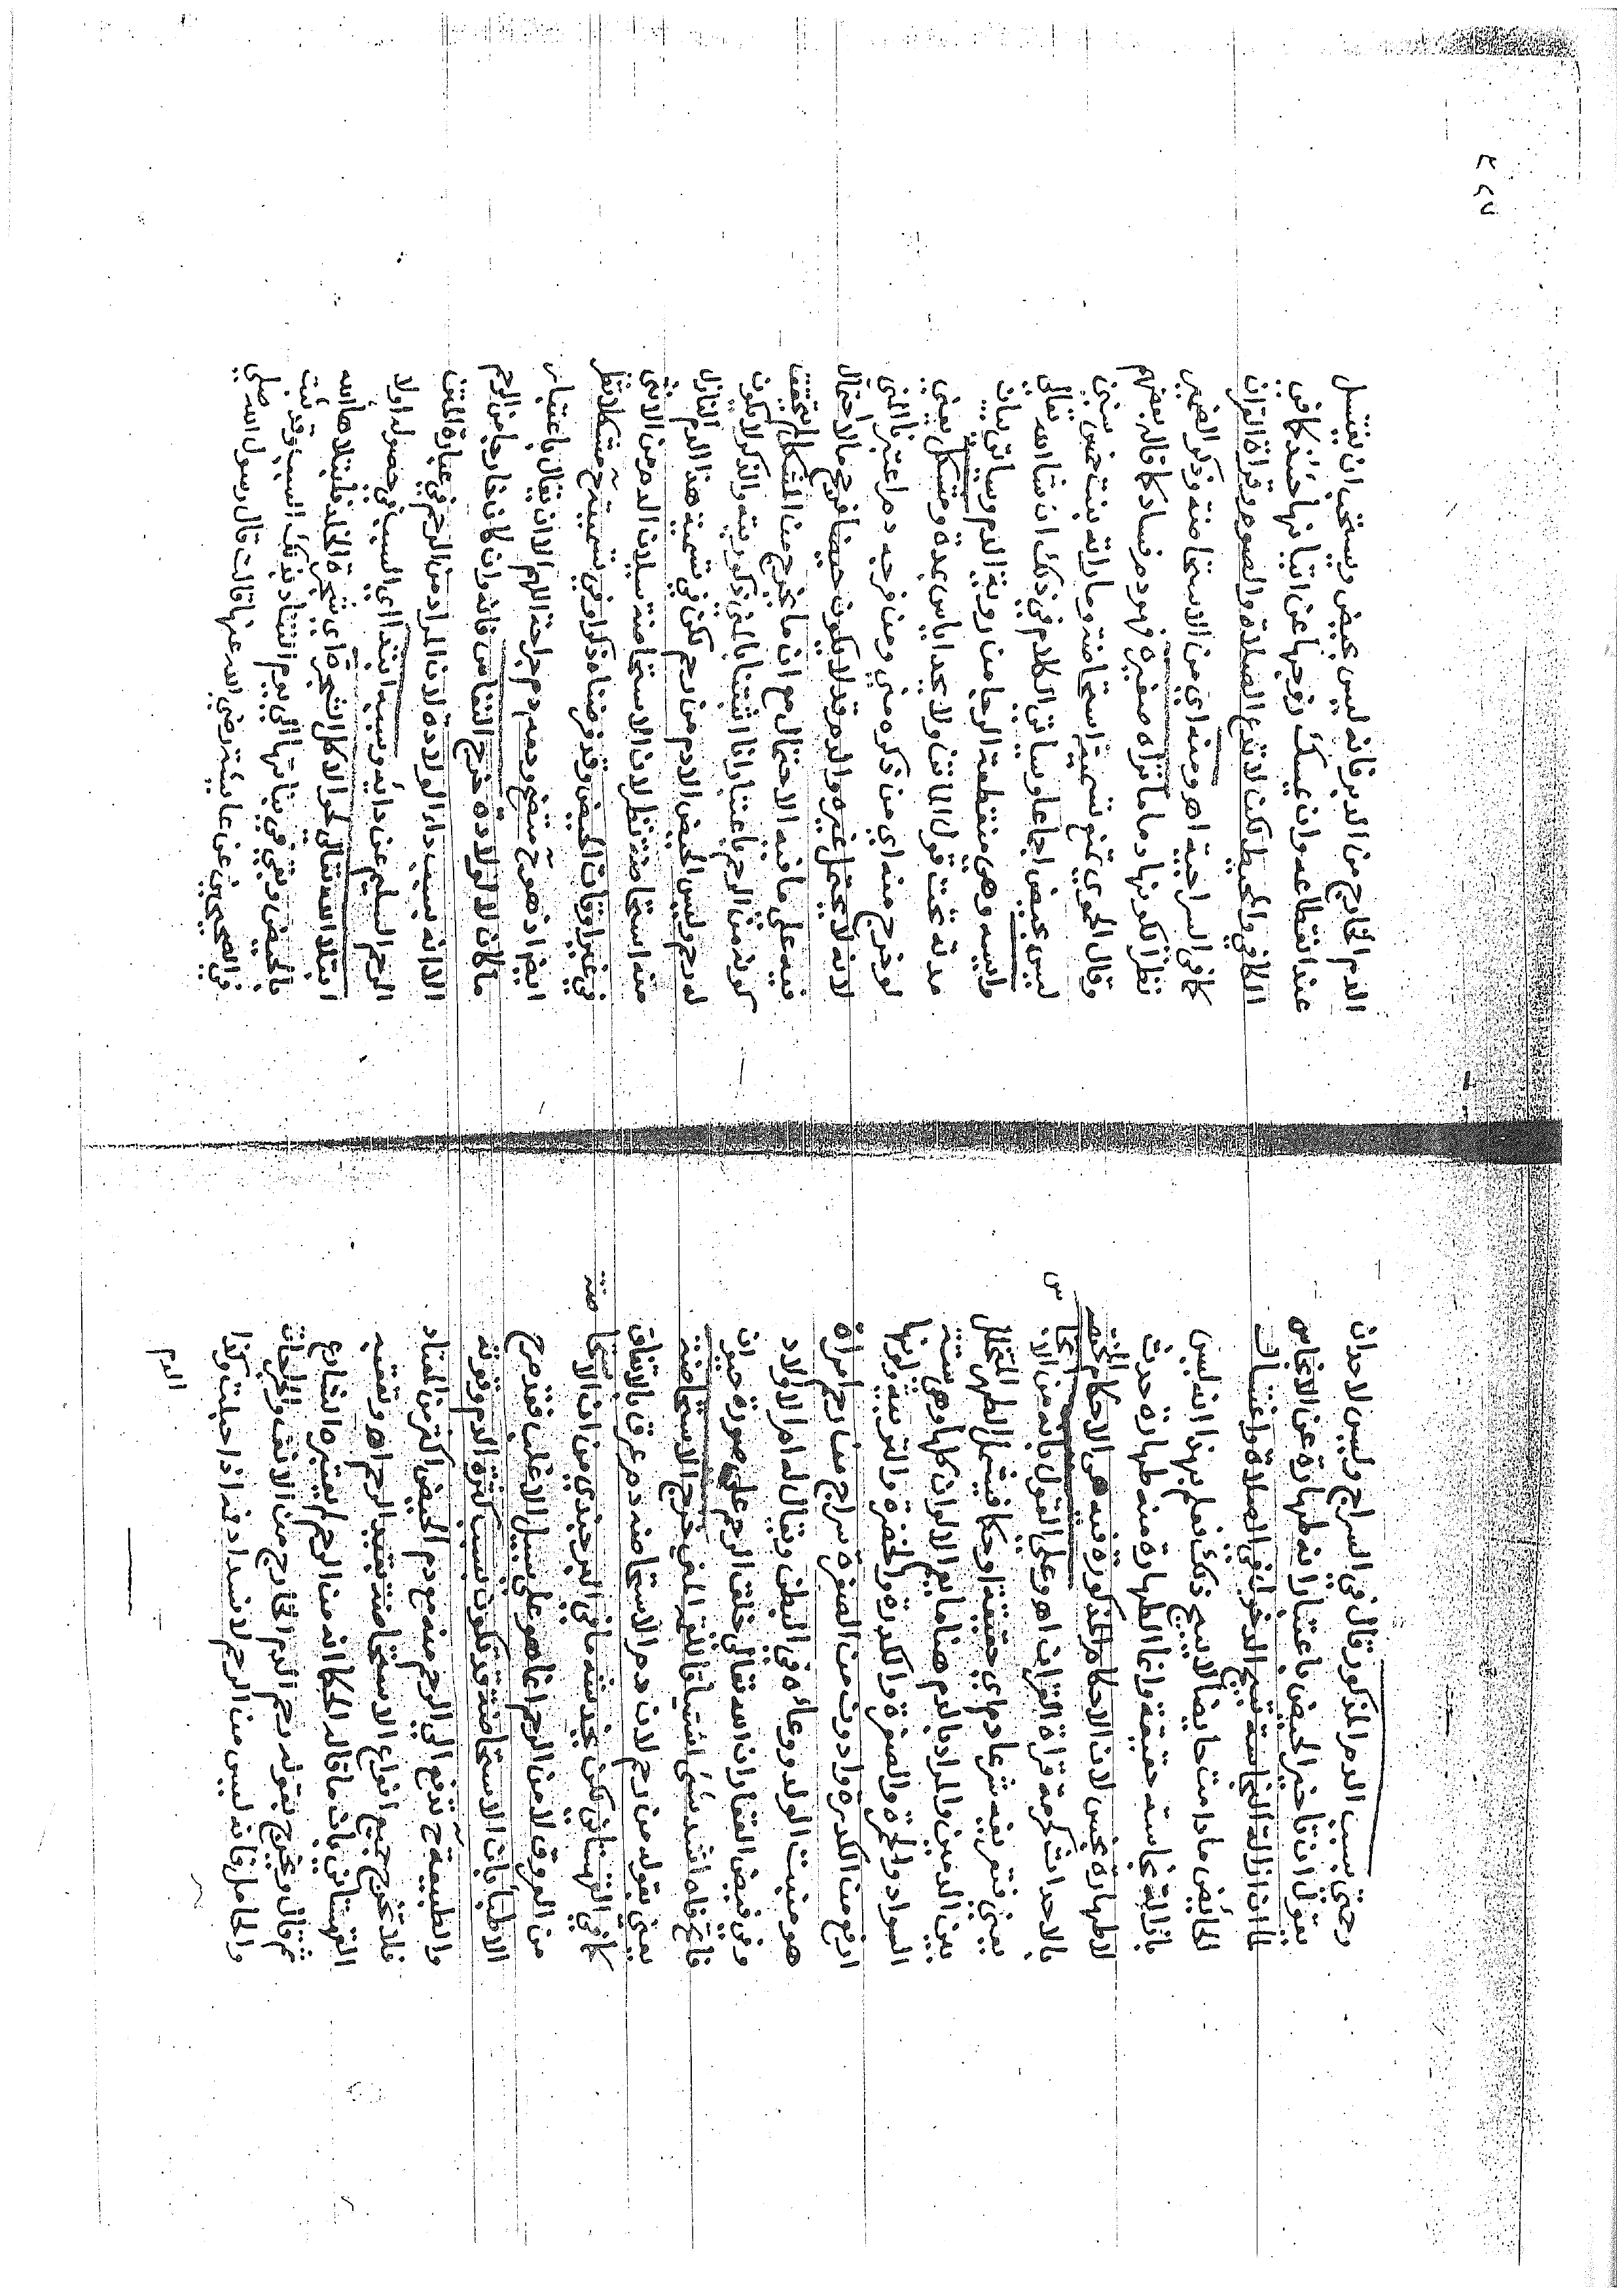 وحتى بسبب الدم المذكور قال في السراج وليس لاحدان
يقول ان تاخير الحيض باعتبار انه طهارة عن الانجاس
لما ان ازالة النجاسة تبيح الدخول في الصلاة واغتسال
الحائض ما دامت حايضا لا يبيح ذلك فعلم بهذا انه ليس
بازالة نجاسة حقيقة وانما الطهارة منه طهارة حدث
لا طهارة نجس لان الاحكام المذكورة فيه هي الاحكام المختصة
بالاحداث كحرمة قراة القران اهـ وعلى القول بانه من الانجاس
يعني فتعريفه شرعا دم اي حقيقة او حكما فيشمل الطهر المتخلل
بين الدمين والمراد بالدم هنا ما يعم الالوان كلها وهي ستة
السواد والحمرة والصفرة والكدرة والخضرة والتربية ولونها
ارفع من الكدرة وادون من الصفرة سراج من رحم امراة
هو منبت الولد ووعاؤه في البطن ويقال له ام الاولاد
وفي فيض الغفار ان الله تعالى خلق الرحم على صورة حيوان
فاتح فاه اشد شئ اشتياقا للقم المني خرج الاستحاضة
يعني بقوله من رحم لان دم الاستحاضة دم عرق بالاتفاق
كما في القهستاني لكن يخدشه ما في البرجندي من ان الاستحاضة
من العروق لا من الرحم انما هو على سبيل الاغلب فقد صرح
الاطباء بان الاستحاضة قد تكون بسبب كثرة الدم وقوته
والطبيعة ح تدفع الى الرحم منه مع دم الحيض اكثر من المعتاد
فلا تخرج جميع انواع الاستحاضة بقيد الرحم اهـ وتعقبه
القهستاني بان ما قاله الحكما انه من الرحم لم يعتبره الشارع
ثم قال ويخرج بقوله رحم الدم الخارج من الانف والجراحات
والحامل فانه ليس من الرحم لانسداد فمه اذا حبلت وكذا
الدم
الدم الخارج من الدبر فانه ليس بحيض ويستحب ان تغتسل
عند انقطاعه وان يمسك زوجها عن اتيانها حينئذ كما في
الكافي والمحيط لكن لا تدع الصلاة والصوم وقراة القران
كما في السراجية اهـ ومنه اي من الاستحاضة وذكر الضمير
نظرا لكونها دما ما تراه صغيرة فهو دم فساد كما قاله بعضهم
وقال الحموي يمنع تسميته استحاضة وما راته بنت خمس سنين
ليس بحيض اجماعا وسياتي الكلام في ذلك ان شا الله تعالى
وايسة وهي منقطعة الرجا من روية الدم وسياتي بيان
مدته تحت قول الماتن ولا يحد اياس بمدة ومشكل يعني
لو خرج منه اي من ذكره مني ومن فرجه دم اعتبرنا المني
لانه لا يحتمل غيره والدم قد لا يكون حيضا فرجح مالا احتمال
فيه على ما فيه الاحتمال مع ان ما يخرج من المشكل لم يتحقق
كونه من الرحم باعتبار انا اثبتنا بالمني ذكوريته والذكر لا يكون
له رحم وليس الحيض الا دم من رحم لكن في تسمية هذا الدم النازل
منه استحاضة نظر لان الاستحاضة سيلان الدم من الانثى
في غير اوقات الحيض وقد فرضناه ذكرا وفي تسميته ح مشكلا نظر
ايضا اذ هو ح متضح ودمه دم جراحة اللهم الا ان يقال باعتبار
ما كان لا لولادة خرج النفاس فانه وان كان خارجا من الرحم
الا انه بسبب داء الولادة لان المراد من الرحم في عبارة الماتن
الرحم السليم عن داء وسببه ابتدا اي السبب في حصوله اولا
ابتلا الله تعالى لحوا لاكل الشجرة اي شجرة الخلد فابتلاها الله
بالحيض وبقي في بناتها الى يوم التناد بذلك السبب وقد ثبت
في الصحيحين عن عايشة رضي الله عنها قالت قال رسول الله صلى